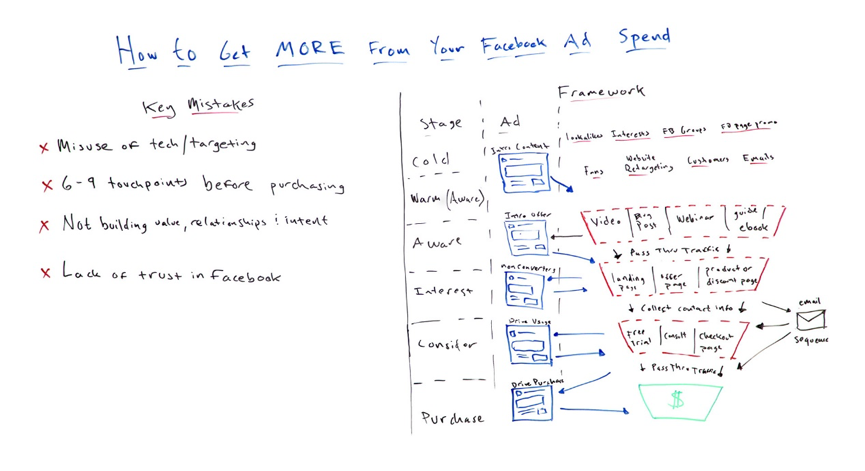 How to Get MORE From Your Facebook Ad Spend
Key Mistakes
x Misuse of tech/targeting
x 6-9 touchpoints before purchasing
x Not building value, relationships & intent
x Lack of trust in Facebook
Framework
Stage
Ad
Cold
Warm (Aware)
Aware
Interest
Consider
Purchase
Intro Content
Intro Offer
Nonconverters
Drive Usage
Drive Purchase
Lookalikes Interests FB Groups FB page promo
Fans Website Retargeting Customers Emails
Video Blog Post Webinar guide/ebook
↓ Pass Thru Traffic ↓
landing page offer page product or discount page
↓ Collect contact info ↓
Free Trial Consult Checkout page
↓ Pass Thru Traffic ↓
$
email
sequence